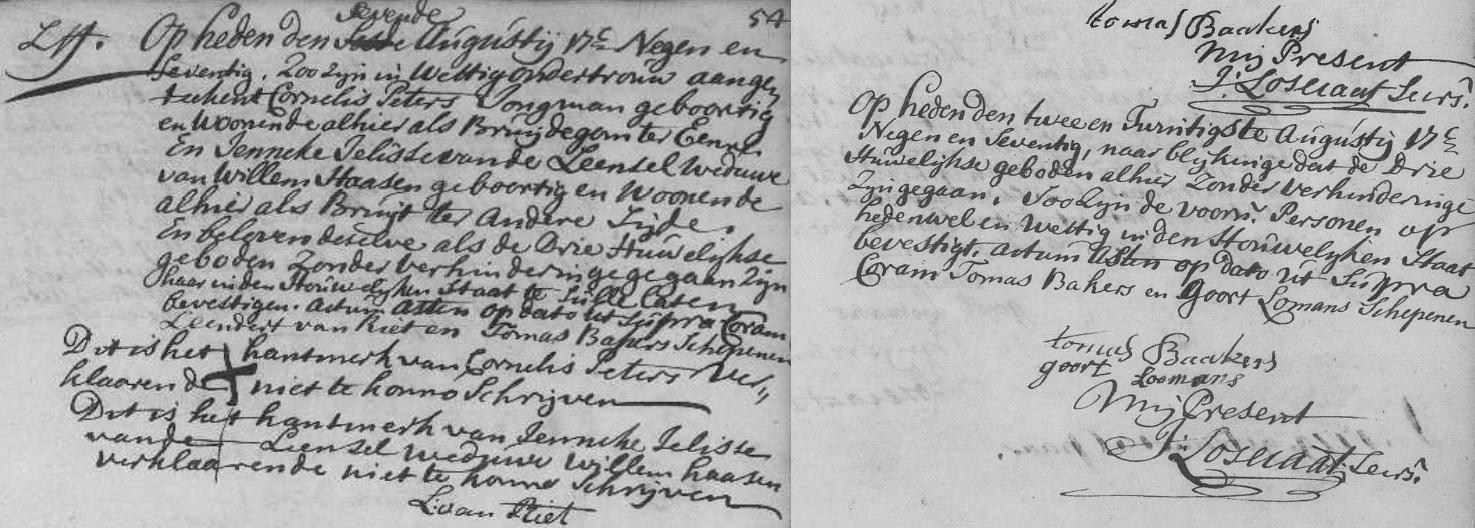 54
sevende
Lff. Op heden den Seste Augustij 17c Negen en
seventig, Zoo Zijn in Wettig ondertrouw aange
tekent Cornelis Peters Jongman geboortig
en Woonende alhier als Bruijdegom ter Eenre
En Jenneke Jelisse vande Leensel Weduwe
van Willem Haasen geboortig en Woonende
alhier als Bruijt ter Andere Zijde.
En beloven deselve als de Drie Huwelijkse
geboden Zonder verhinderinge gegaan Zijn
haar in den Houwelijken Staat te Sulle Laten
bevestigen. Actum Asten op dato ut Supra Coram
Leendert van Riet en Tomas Bakers Schepenen
Dit is het hantmerk van Cornelis Peters Ver,,
klaarende niet te konne Schrijven
Dit is het hantmerk van Jenneke Jelisse
vande Leensel weduwe Willem haasen
verklaarende niet te konne Schrijven
L: van Riet
tomas Baakers
Mij Present
J: Losecaat Secrs.
Op heden den twee en Twintigste Augustij 17c
Negen en Seventig, naar blijkinge dat de Drie
Huwelijkse geboden alhier Zonder verhinderinge
Zijn gegaan, Soo Zijn de voorn. Personen op
heden wel en Wettig in den Houwelijken Staat
bevestigt. Actum Asten op dato ut Supra
Coram Tomas Bakers en Goort Lomans Schepenen
tomas Baakers
goort Loomans
Mij Present
J: Losecaat Secrs.